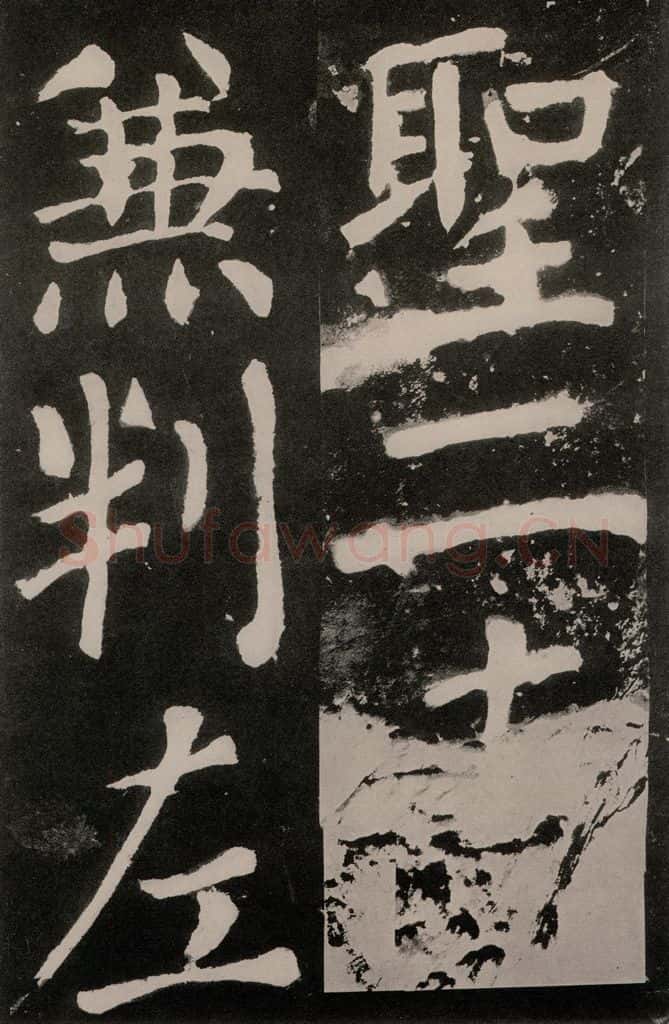 聖二
兼判左
Shufawang.CN